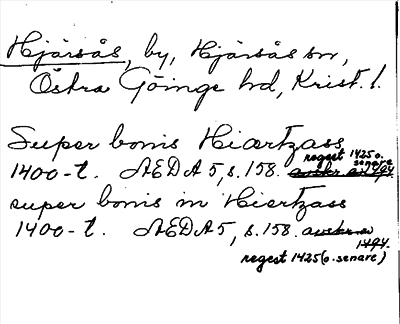 Hjärsås, by, Hjärsås sn,
Östra Göinge hd, Krist. l.
Super bonis Hiærtzass
1400-t. ÆDA 5, s. 158. avskr av 1494 regest 1425 o. senare
super bonis in Hiertzass
1400-t. ÆDA 5, s. 158. avskr av 1494.
regest 1425 (o. senare)